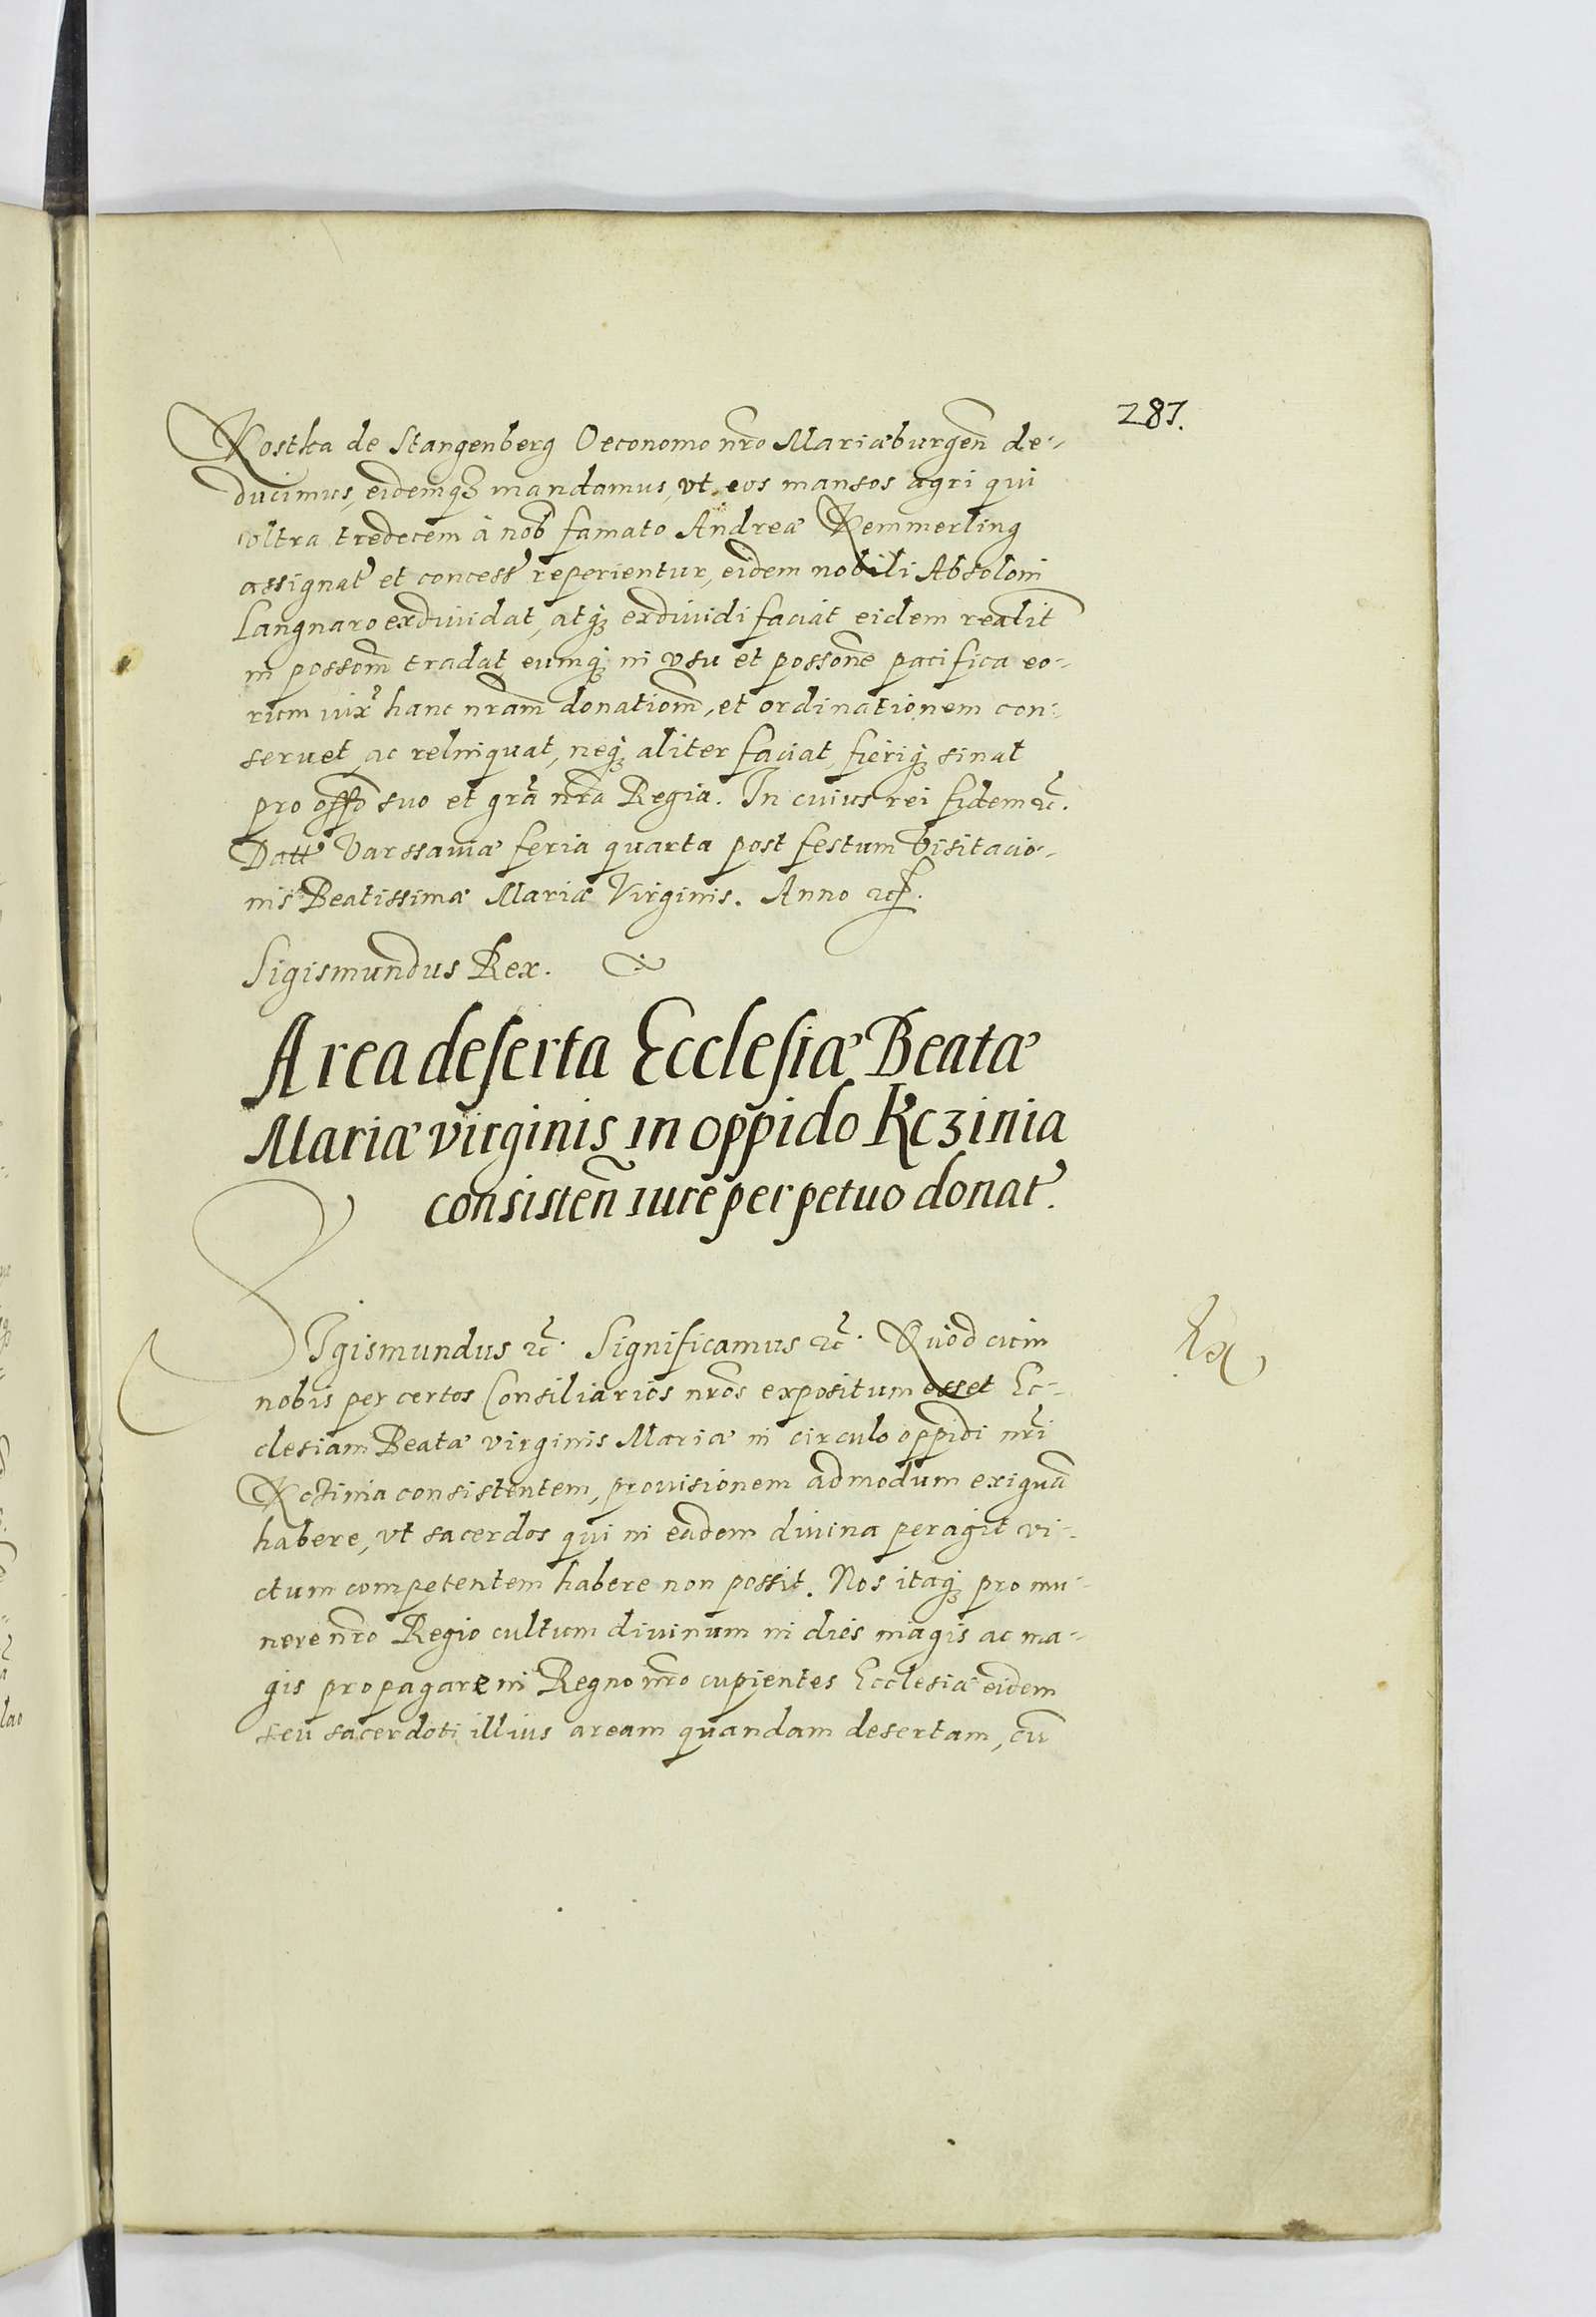 287.
Kostka de Stangenberg Oeconomo nr̃o Mariæburgen̄ de-
ducimus, eidemqȝ mandamus, vt eos mansos agri qui
vltra tredecem à nob famato Andreæ Kemmerling
assignat' et concess' reperientur, eidem nobili Absoloni
Langnaro exdiuidat, atqȝ exdiuidi faciat eidem realit̃
in possom̃ tradat eumqȝ in vsu et possone pacifica eo-
rum iux' hanc nram̃ donationẽ, et ordinationem con-
seruet, ac relinquat, neqȝ aliter faciat, fieriqȝ sinat
pro offo suo et grã nrã Regia. In cuius rei fidem ꝛc̃.
Datt' Varssauiæ feria quarta post festum Visitacio-
nis Beatissimæ Mariæ Virginis. Anno ꝛc.
Sigismundus Rex.
Area deserta Ecclesiæ Beatæ
Mariæ virginis in oppido Kczinia
consisten̄ iure perpetuo donat'.
SIgismundus ꝛc̃. Significamus ꝛc̃. Quod cum
nobis per certos Consiliarios nr̃os expositum esset Ec-
clesiam Beatæ virginis Mariæ in circulo oppidi nr̃i
Kczinia consistentem, prouisionem admodum exiguã
habere, vt sacerdos qui in eadem diuina peragit vi-
ctum competentem habere non possit. Nos itaqȝ pro mu-
nere nr̃o Regio cultum diuinum in dies magis ac ma-
gis propagare in Regno nr̃o cupientes Ecclesiæ eidem
seu sacerdoti illius aream quandam desertam, cũ